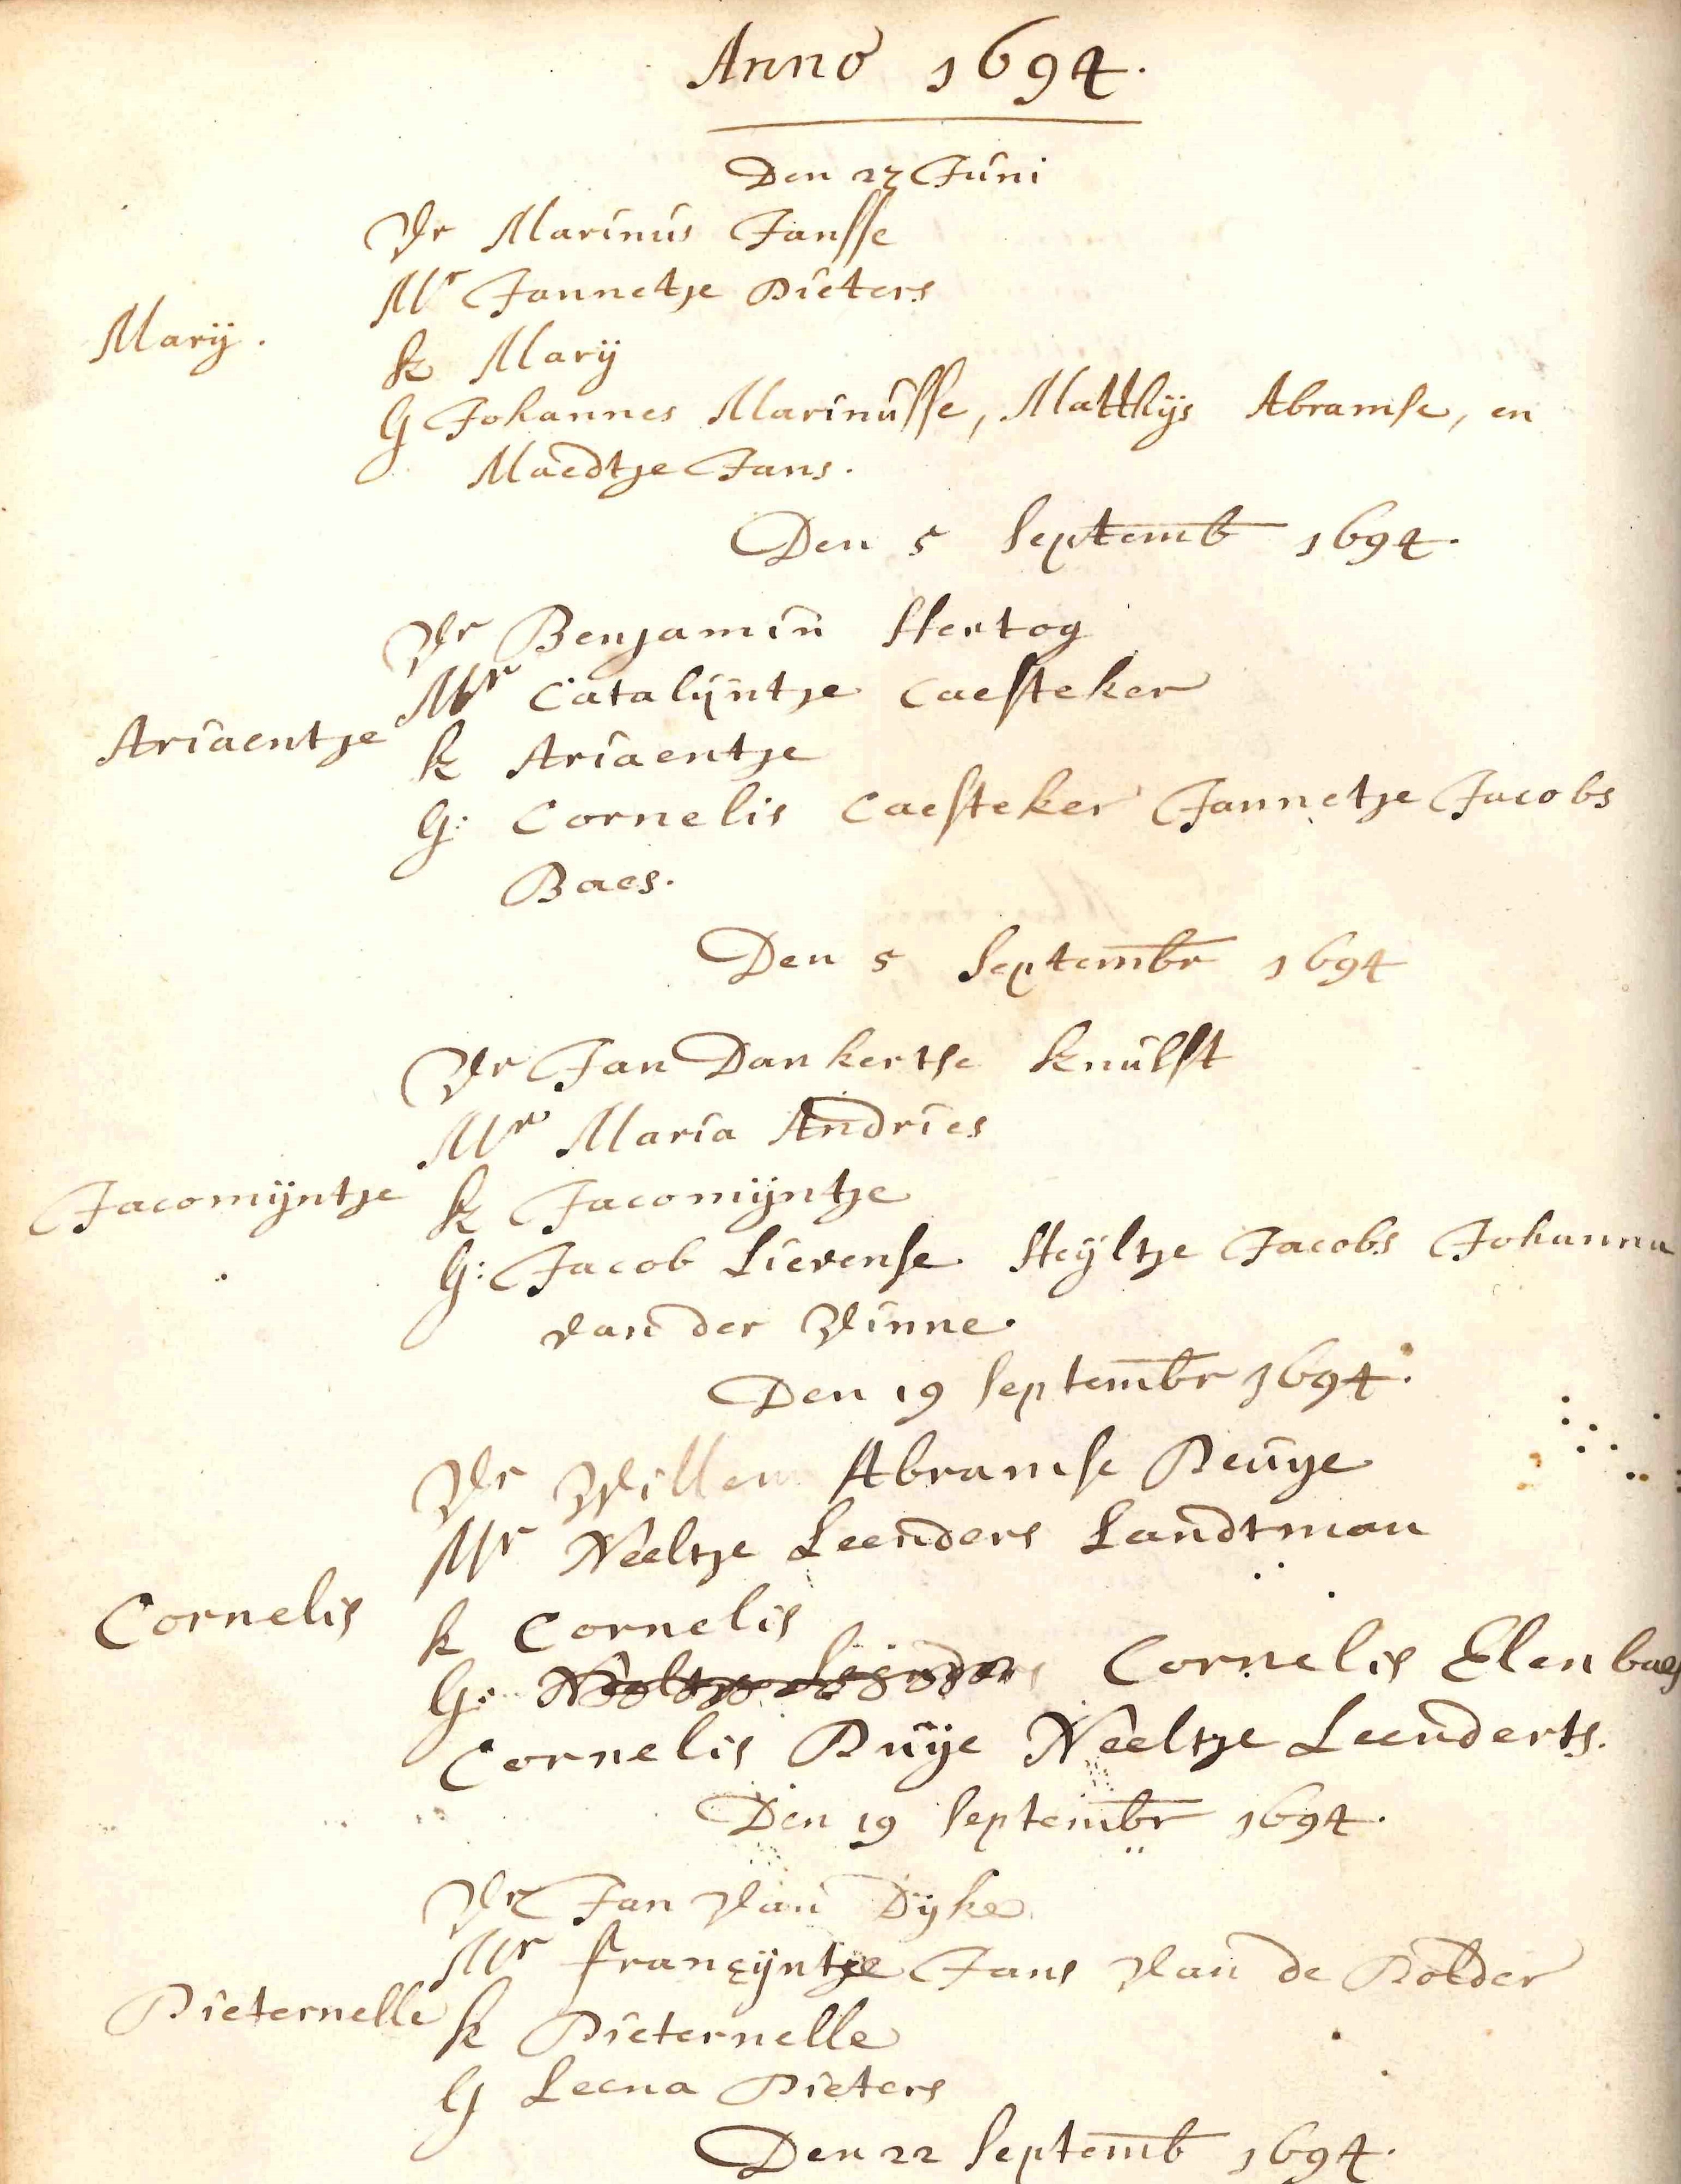 Anno 1694.
Den 27 Juni
Vr Marinus Jansse
Mr Jannetje Pieters
Marij.
k Marij
G Johannes Marinusse, Matthijs Abramse, en
Maedtje Jans.
Den 5 Septemb 1694.
Vr Benjamin Hertog
Mr Catalijntje Caesteker
Ariaentje
k Ariaentje
G: Cornelis Caesteker Jannetje Jacobs
Baes.
Den 5 Septembr 1694
Vr Jan Dankertse Knulst
Mr Maria Andries
Jacomijntje
k Jacomijntje
G: Jacob Lievense Heijltje Jacobs Johanna
van der Vinne.
Den 19 Septembr 1694.
Vr Willem Abramse Peuije
Mr Neeltje Leenders Landtman
Cornelis
k Cornelis
G: Cornelis Elenbaes
Cornelis Puije Neeltje Leenderts.
Den 19 Septembr 1694.
Vr Jan Van Dijke
Mr francijntje Jans Van de Polder
Pieternelle
k Pieternelle
G Leena Pieters
Den 22 Septemb 1694.